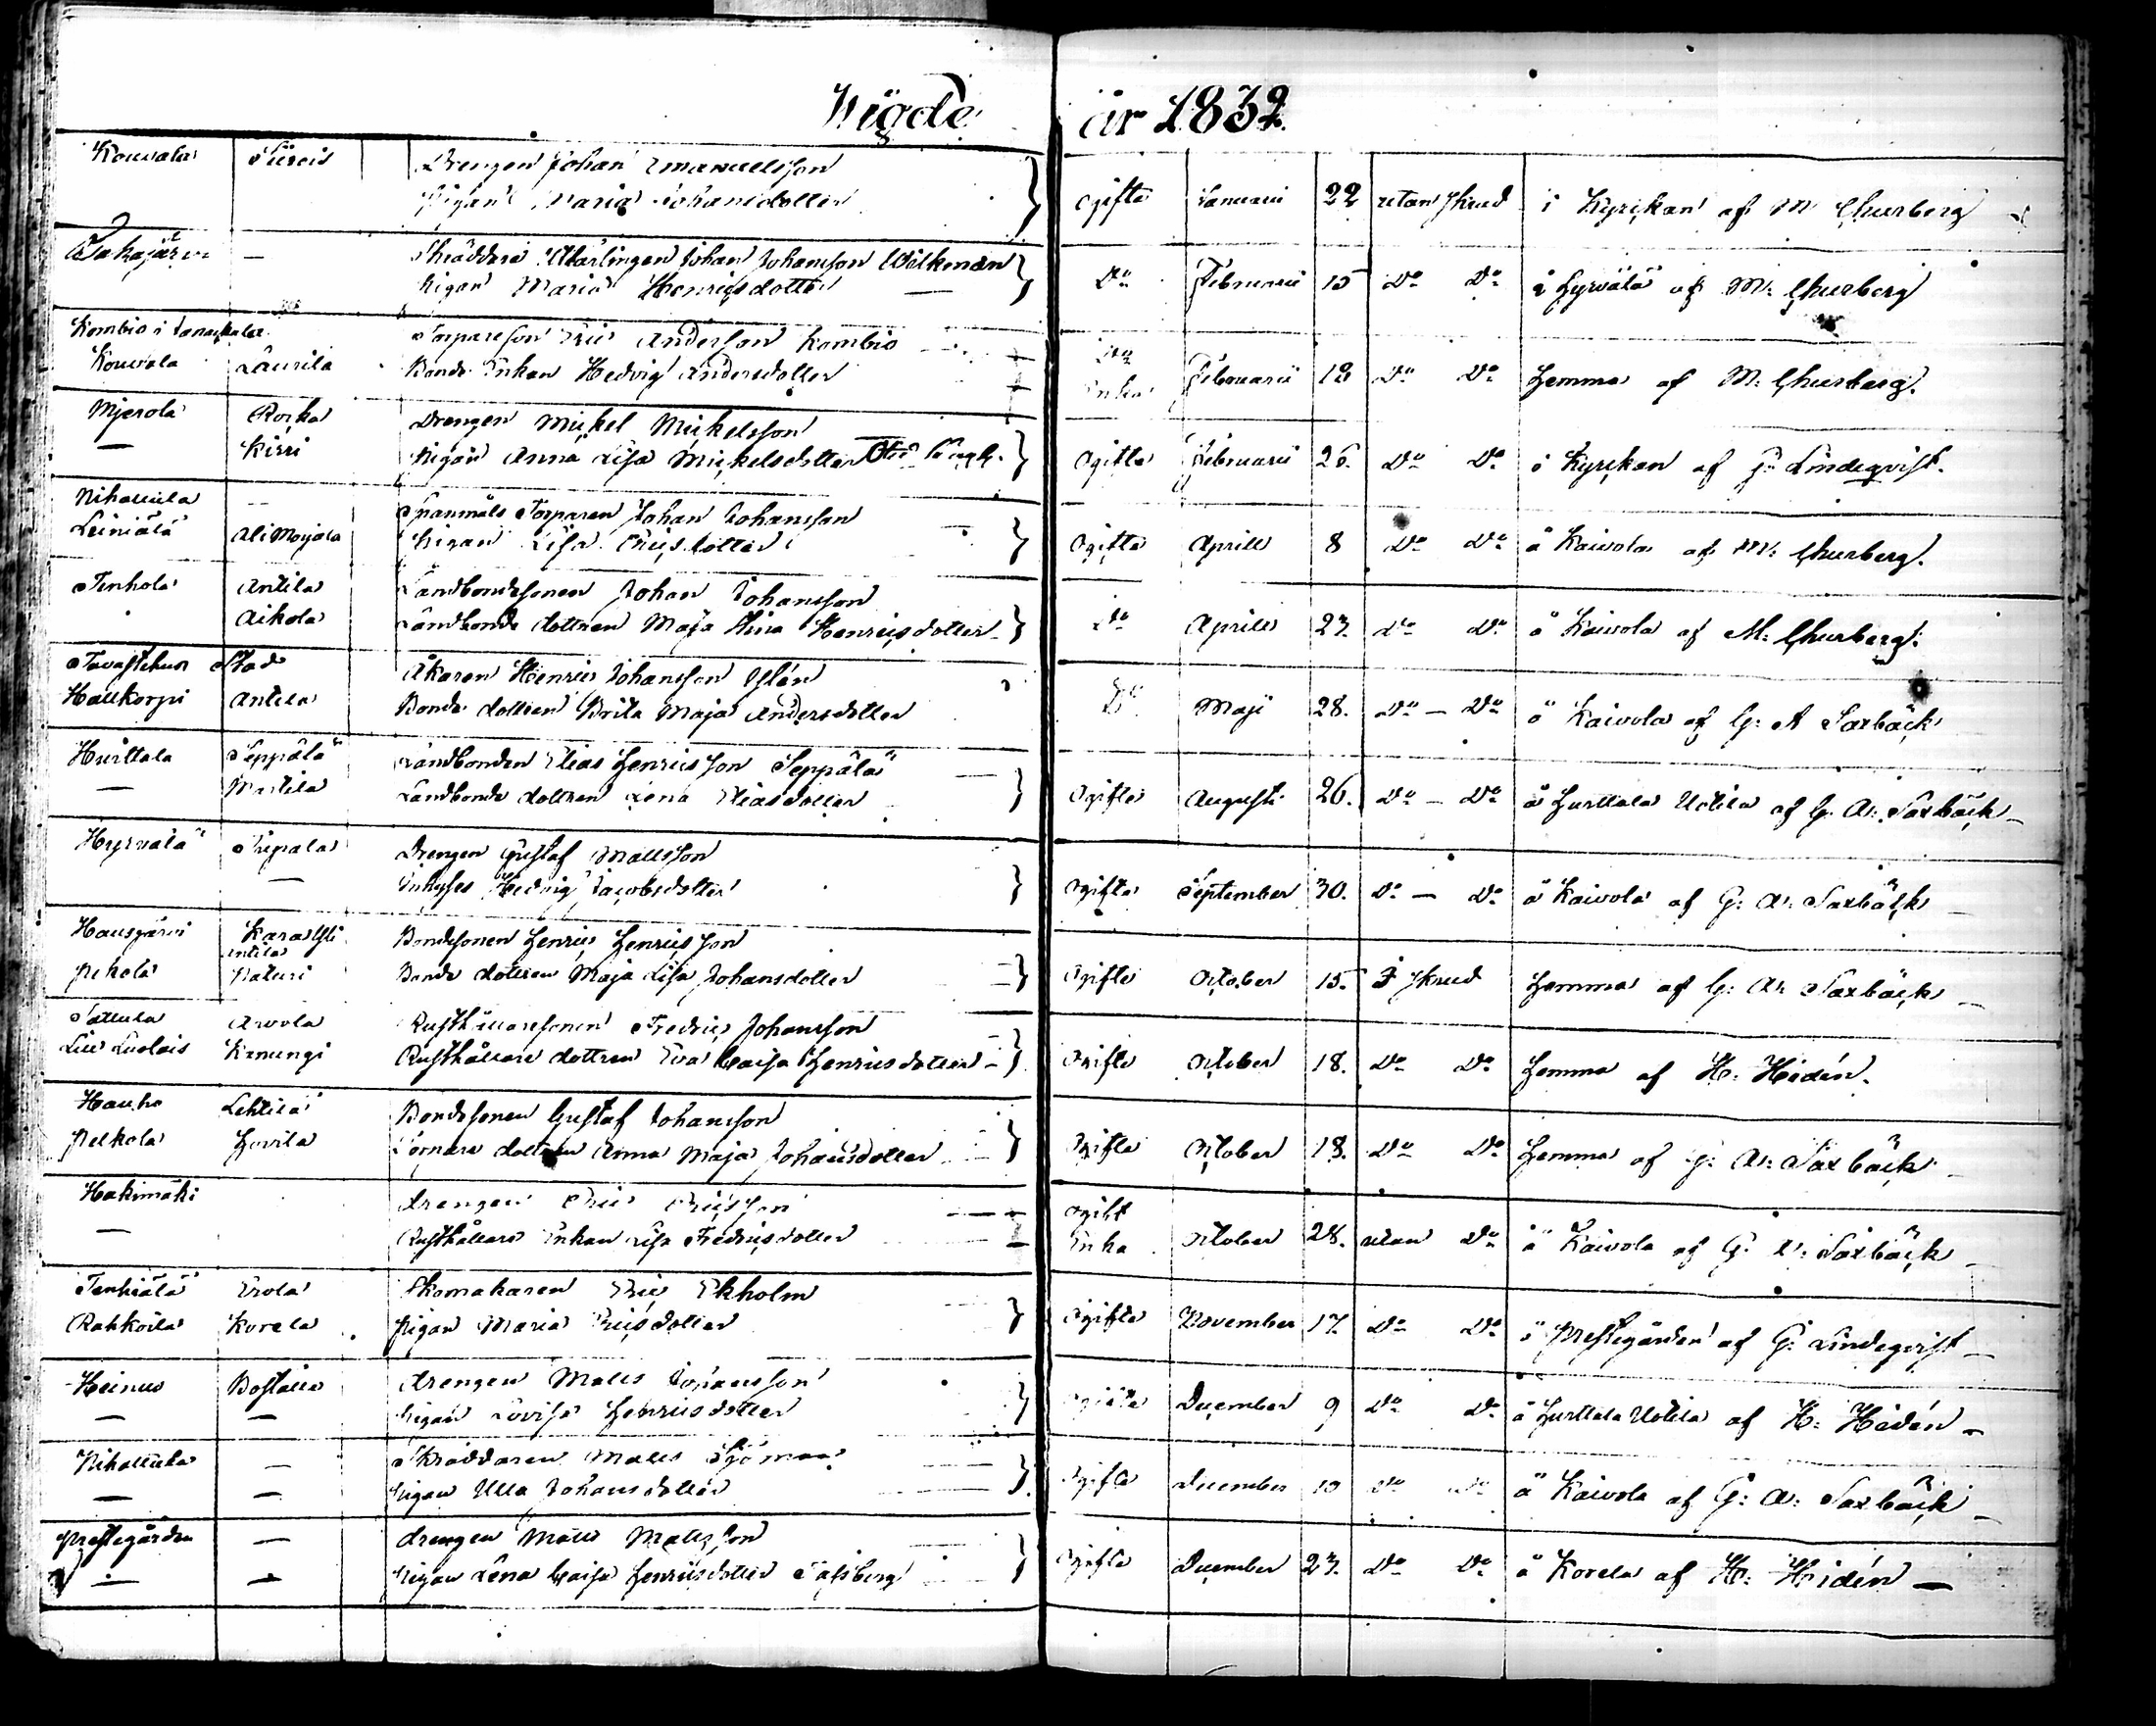 Wigde år 1832.
Kouvala Drengen Johan Emanuelsson
Pigan Maria Johansdotter ogifte Januarii 22 utan skrud i Kyrckan af M Churberg
Takajärvi — Skräddare Lärlingen Johan Johansson Wilkman
Pigan Maria Henricsdotter — Do Februarii 15 Do Do i Hyrvälä af M: Churberg
Kombio i Janackala Torparsson Eric Andersson Kombio
Kouvala Laurila Bonde Enkan Hedvig Andersdotter Do Enka Februarii 18 Do Do hemma af M: Churberg.
Mjerola Rocka Drengen Michel Michelsson
— Kirri Pigan Anna Lisa Michelsdotter ogifte Februarii 26. Do Do i Kyrckan af G: Lindeqvist.
Nihattula — Spanmåls Torparen Johan Johansson
Leiniälä Ali Moijala Pigan Lisa Ericsdotter ogifte Aprill 8 Do Do å Kaivola af M: Churberg.
Tenhola Antila Landbondesonen Johan Johansson
Aikola Landbonde dottren Maja Stina Henricsdotter Do Aprill 23. Do Do å Kaivola af M: Churberg.
Tavastehus Stad Åkaren Henric Johansson
Hattkorpi Antila Bonde dottren Brita Maja Andersdotter Do Maji 28. Do — Do å Kaivola af G: A Saxbäck
Hurttala Seppälä Landbonden Elias Henricsson Seppälä —
— Martila Landbonde dottren Lena Eliasdotter ogifte Augusti 26. Do — Do å Hurttala Uotila af G. A: Saxbäck —
Hyrvälä Drengen Gustaf Mattsson
— Inhyses Hedvig Jacobsdotter ogifte September 30. Do — Do å Kaivola af G: A: Saxbäck —
Hausjärvi Kara Bondesonen Henric Henricsson
Pehola Naturi Bonde dottren Maja Lisa Johansdotter — ogifte October 15. I skrud hemma af G: A: Saxbäck —
Sattula Arvola Rusthållaresonen Fredric Johansson —
Lill Luolais Kenungi Rusthållare dottren Eva Caisa Henricsdotter — ogifte October 18. Do Do hemma af H: Hedén.
Hauho Lehtilä Bondesonen Gustaf Johansson
Pelkola Hovila dottren Anna Maja Johansdotter ogifte October 18. Do Do hemma af G: A: Saxbäck —
Hakimäki Drengen Eric Ericsson — ogift
— Rusthållare Enkan Lisa Fredricsdotter — Enka October 28. utan Do å Kaivola af G: A: Saxbäck —
Tenhiälä Erola Skomakaren Eric Ekholm
Rahkoila Korela Pigan Maria Ericsdotter ogifte November 17. Do Do i Prestegården af G: Lindeqvist —
Heinus Boställe Drengen Matts Johansson
— — Pigan Lovisa Henricsdotter ogifte December 9 Do Do å Hurttala Uotila af H: Hedén —
Nihattula — Skräddaren Matts Sjöman
— — Pigan Ulla Johansdotter ogifte December Do Do å Kaivola af G: A: Saxbäck —
Prestegården — Drengen Matts Mattsson
— — Pigan Lena Caisa Henricsdotter ogifte December 23. Do Do å Korela af H: Hedén —